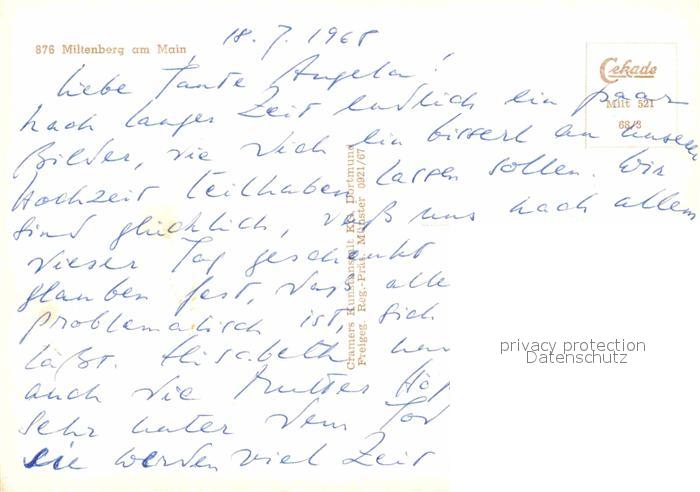 18. 7. 1968
876 Miltenberg am Main
Cekade
Milt 521
68/3
Liebe Tante Angela!
nach langer Zeit endlich ein paar
Bilder, die Dich ein bisserl an unserer
Hochzeit teilhaben lassen sollen. Wir
sind glücklich, daß uns nach allem
dieser Tag geschenkt
glauben fest, daß alle
problematisch ist, sich
läßt. Elisabeth
auch die Mutter
Sehr unter dem Tod
sie werden viel Zeit
Cramers Kunstanstalt KG, Dortmund
Freigeg. Reg.-Präs. Münster 0921/67
privacy protection
Datenschutz